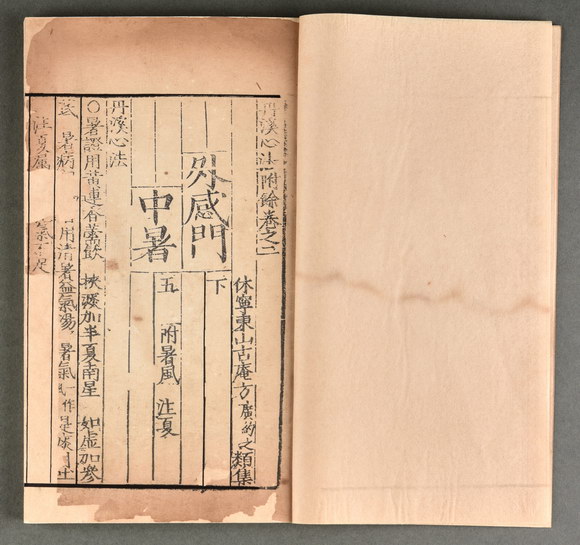 丹溪心法附餘卷之二
休寧東山古庵方廣約之類集
外感門 下
中暑 五 附暑風 注夏
丹溪心法
○暑證用黃連香薷飲 挾痰加半夏南星 如虛加參
暑病 用清暑益氣湯 暑氣 作
注夏屬